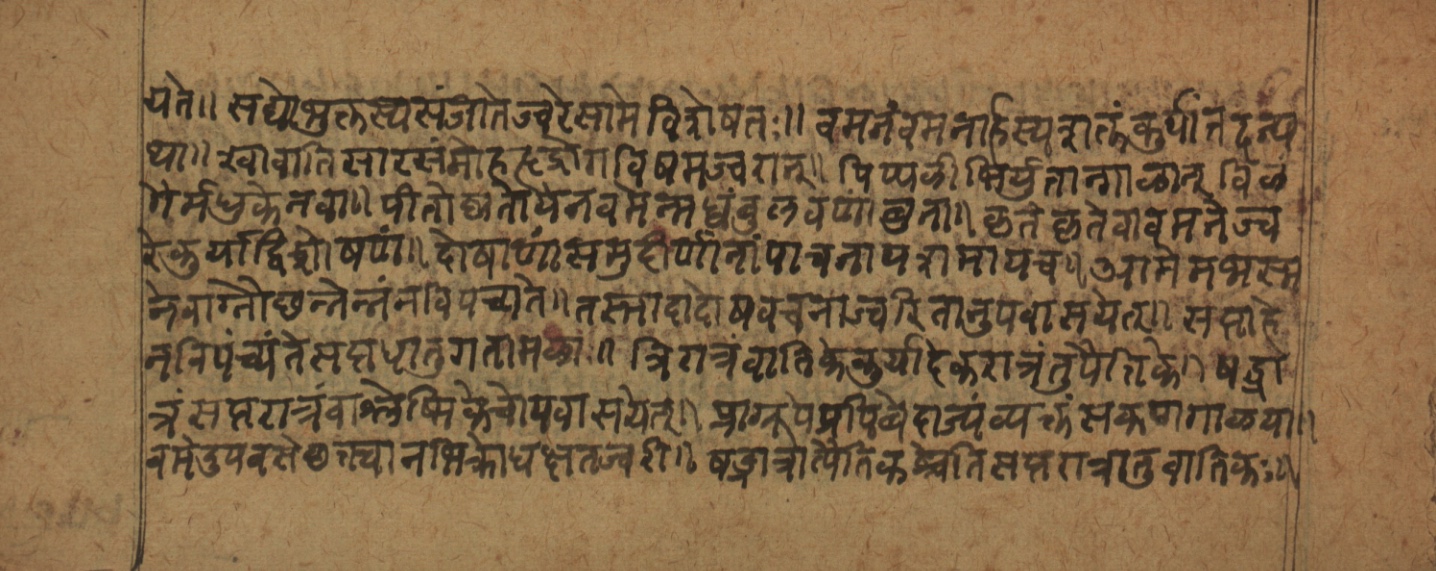 यते॥ सद्योभुक्तस्यसंजातेज्वरेसामेविशेषतः॥ वमनंवमनार्हस्यशस्तंकुर्यात्तदन्य
था॥ श्वासातिसारसंमोहहृद्रोगविषमज्वरान्॥ पिप्पलीभिर्युतान्गाळान् विळं
गेर्मधुकेनवा॥ पीतोद्यतोयेनवमेन्मध्वंबुलवणांबुना॥ कृतेकृतेवावमनेज्व
रेकुर्याद्विशोषणं॥ दोषाणांसमुदीर्णानांपाचनायशमायच॥ आमेमभस्म
नेवाग्नौछन्नेन्नंनविपच्यते॥ तस्मादादोषवचनाज्वरितानुपवासयेत्॥ सप्ताहे
नविपंच्यंतेसप्तधातुगतामळाः॥ त्रिरात्रंवातिकेकुर्यादेकरात्रंतुपैत्तिके॥ षड्रा
त्रंसप्तरात्रंवाश्लेष्मिकेचोपवासयेत्॥ प्राग्नूपेप्रपिबेदाज्यंव्यक्तं
षड्रात्रोत्पैतिकश्चेतिसप्तरात्रातुवातिकः॥